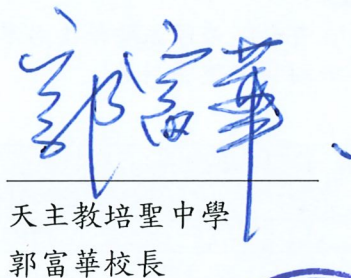 郭富華
天主教培聖中學
郭富華校長